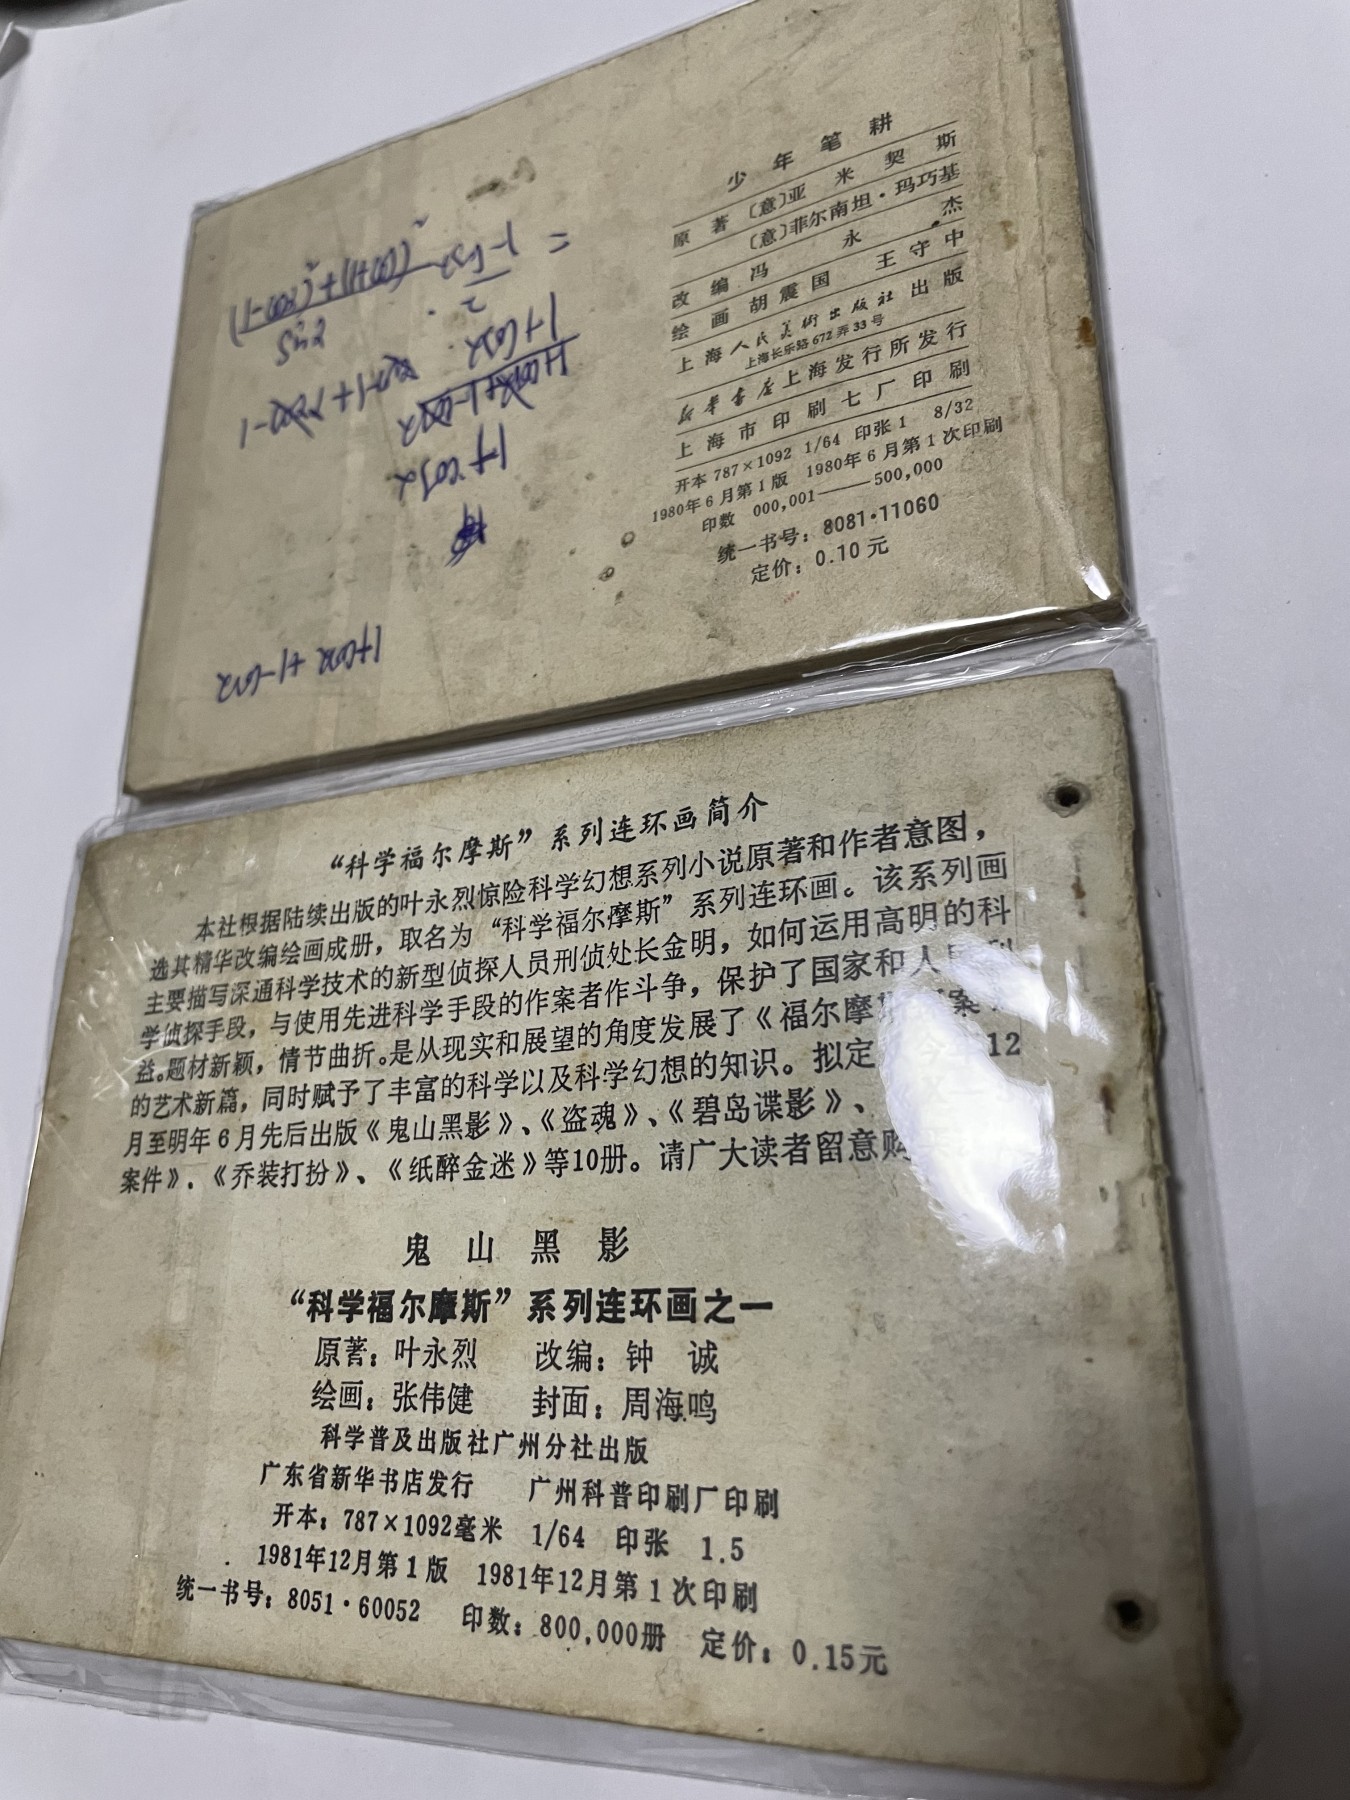 少年笔耕
原著〔意〕亚米契斯
〔意〕菲尔南坦·玛巧基
改编 冯永杰
绘画 胡震国 王守中
上海人民美术出版社出版
上海长乐路672弄33号
新华书店上海发行所发行
上海市印刷七厂印刷
开本 787×1092 1/64 印张 1 8/32
1980年6月第1版 1980年6月第1次印刷
印数 000,001——500,000
统一书号：8081·11060
定价：0.10元
“科学福尔摩斯”系列连环画简介
本社根据陆续出版的叶永烈惊险科学幻想系列小说原著和作者意图，
选其精华改编绘画成册，取名为“科学福尔摩斯”系列连环画。该系列画
主要描写深通科学技术的新型侦探人员刑侦处长金明，如何运用高明的科
学侦探手段，与使用先进科学手段的作案者作斗争，保护了国家和人
益。题材新颖，情节曲折。是从现实和展望的角度发展了《福尔摩 案
的艺术新篇，同时赋予了丰富的科学以及科学幻想的知识。拟定 12
月至明年6月先后出版《鬼山黑影》、《盗魂》、《碧岛谍影》、
案件》、《乔装打扮》、《纸醉金迷》等10册。请广大读者留意购
鬼山黑影
“科学福尔摩斯”系列连环画之一
原著：叶永烈 改编：钟 诚
绘画：张伟健 封面：周海鸣
科学普及出版社广州分社出版
广东省新华书店发行 广州科普印刷厂印刷
开本：787×1092毫米 1/64 印张 1.5
1981年12月第1版 1981年12月第1次印刷
统一书号：8051·60052 印数：800,000册 定价：0.15元